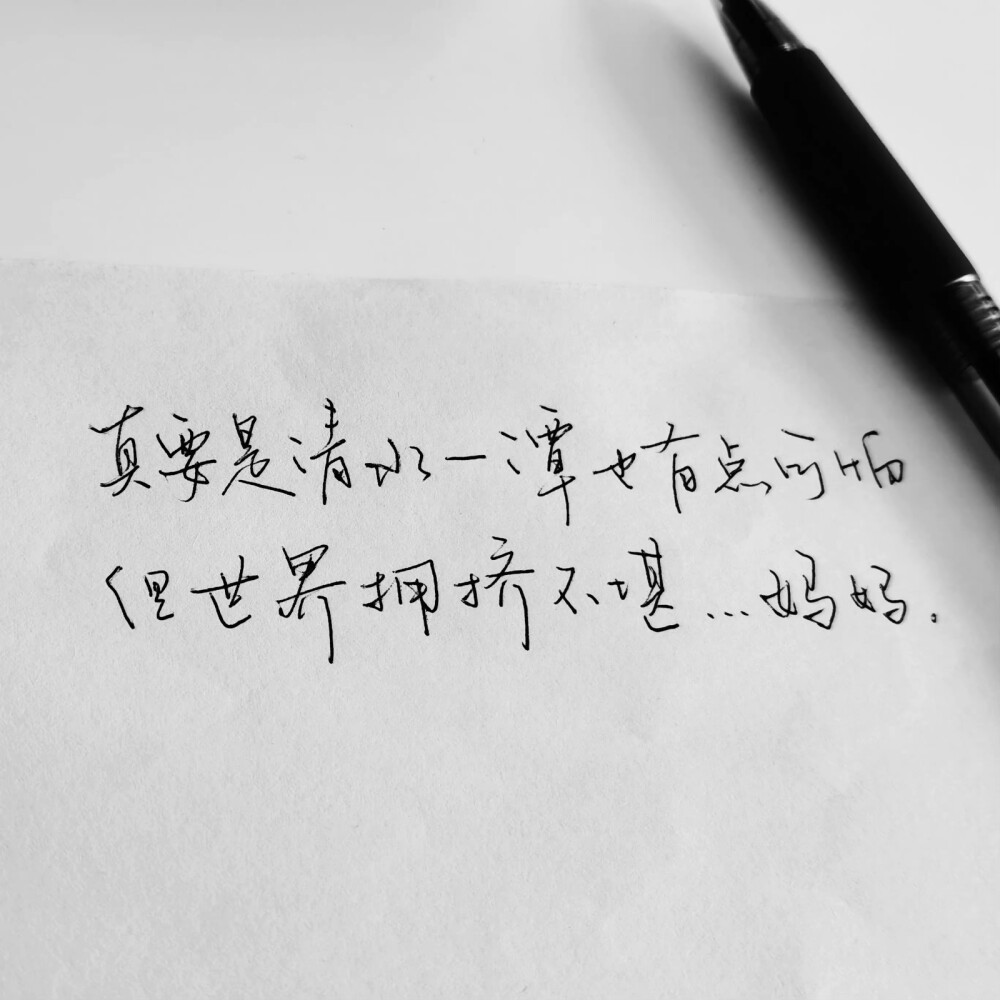 真要是清水一潭也有点可怕
但世界拥挤不堪...妈妈.